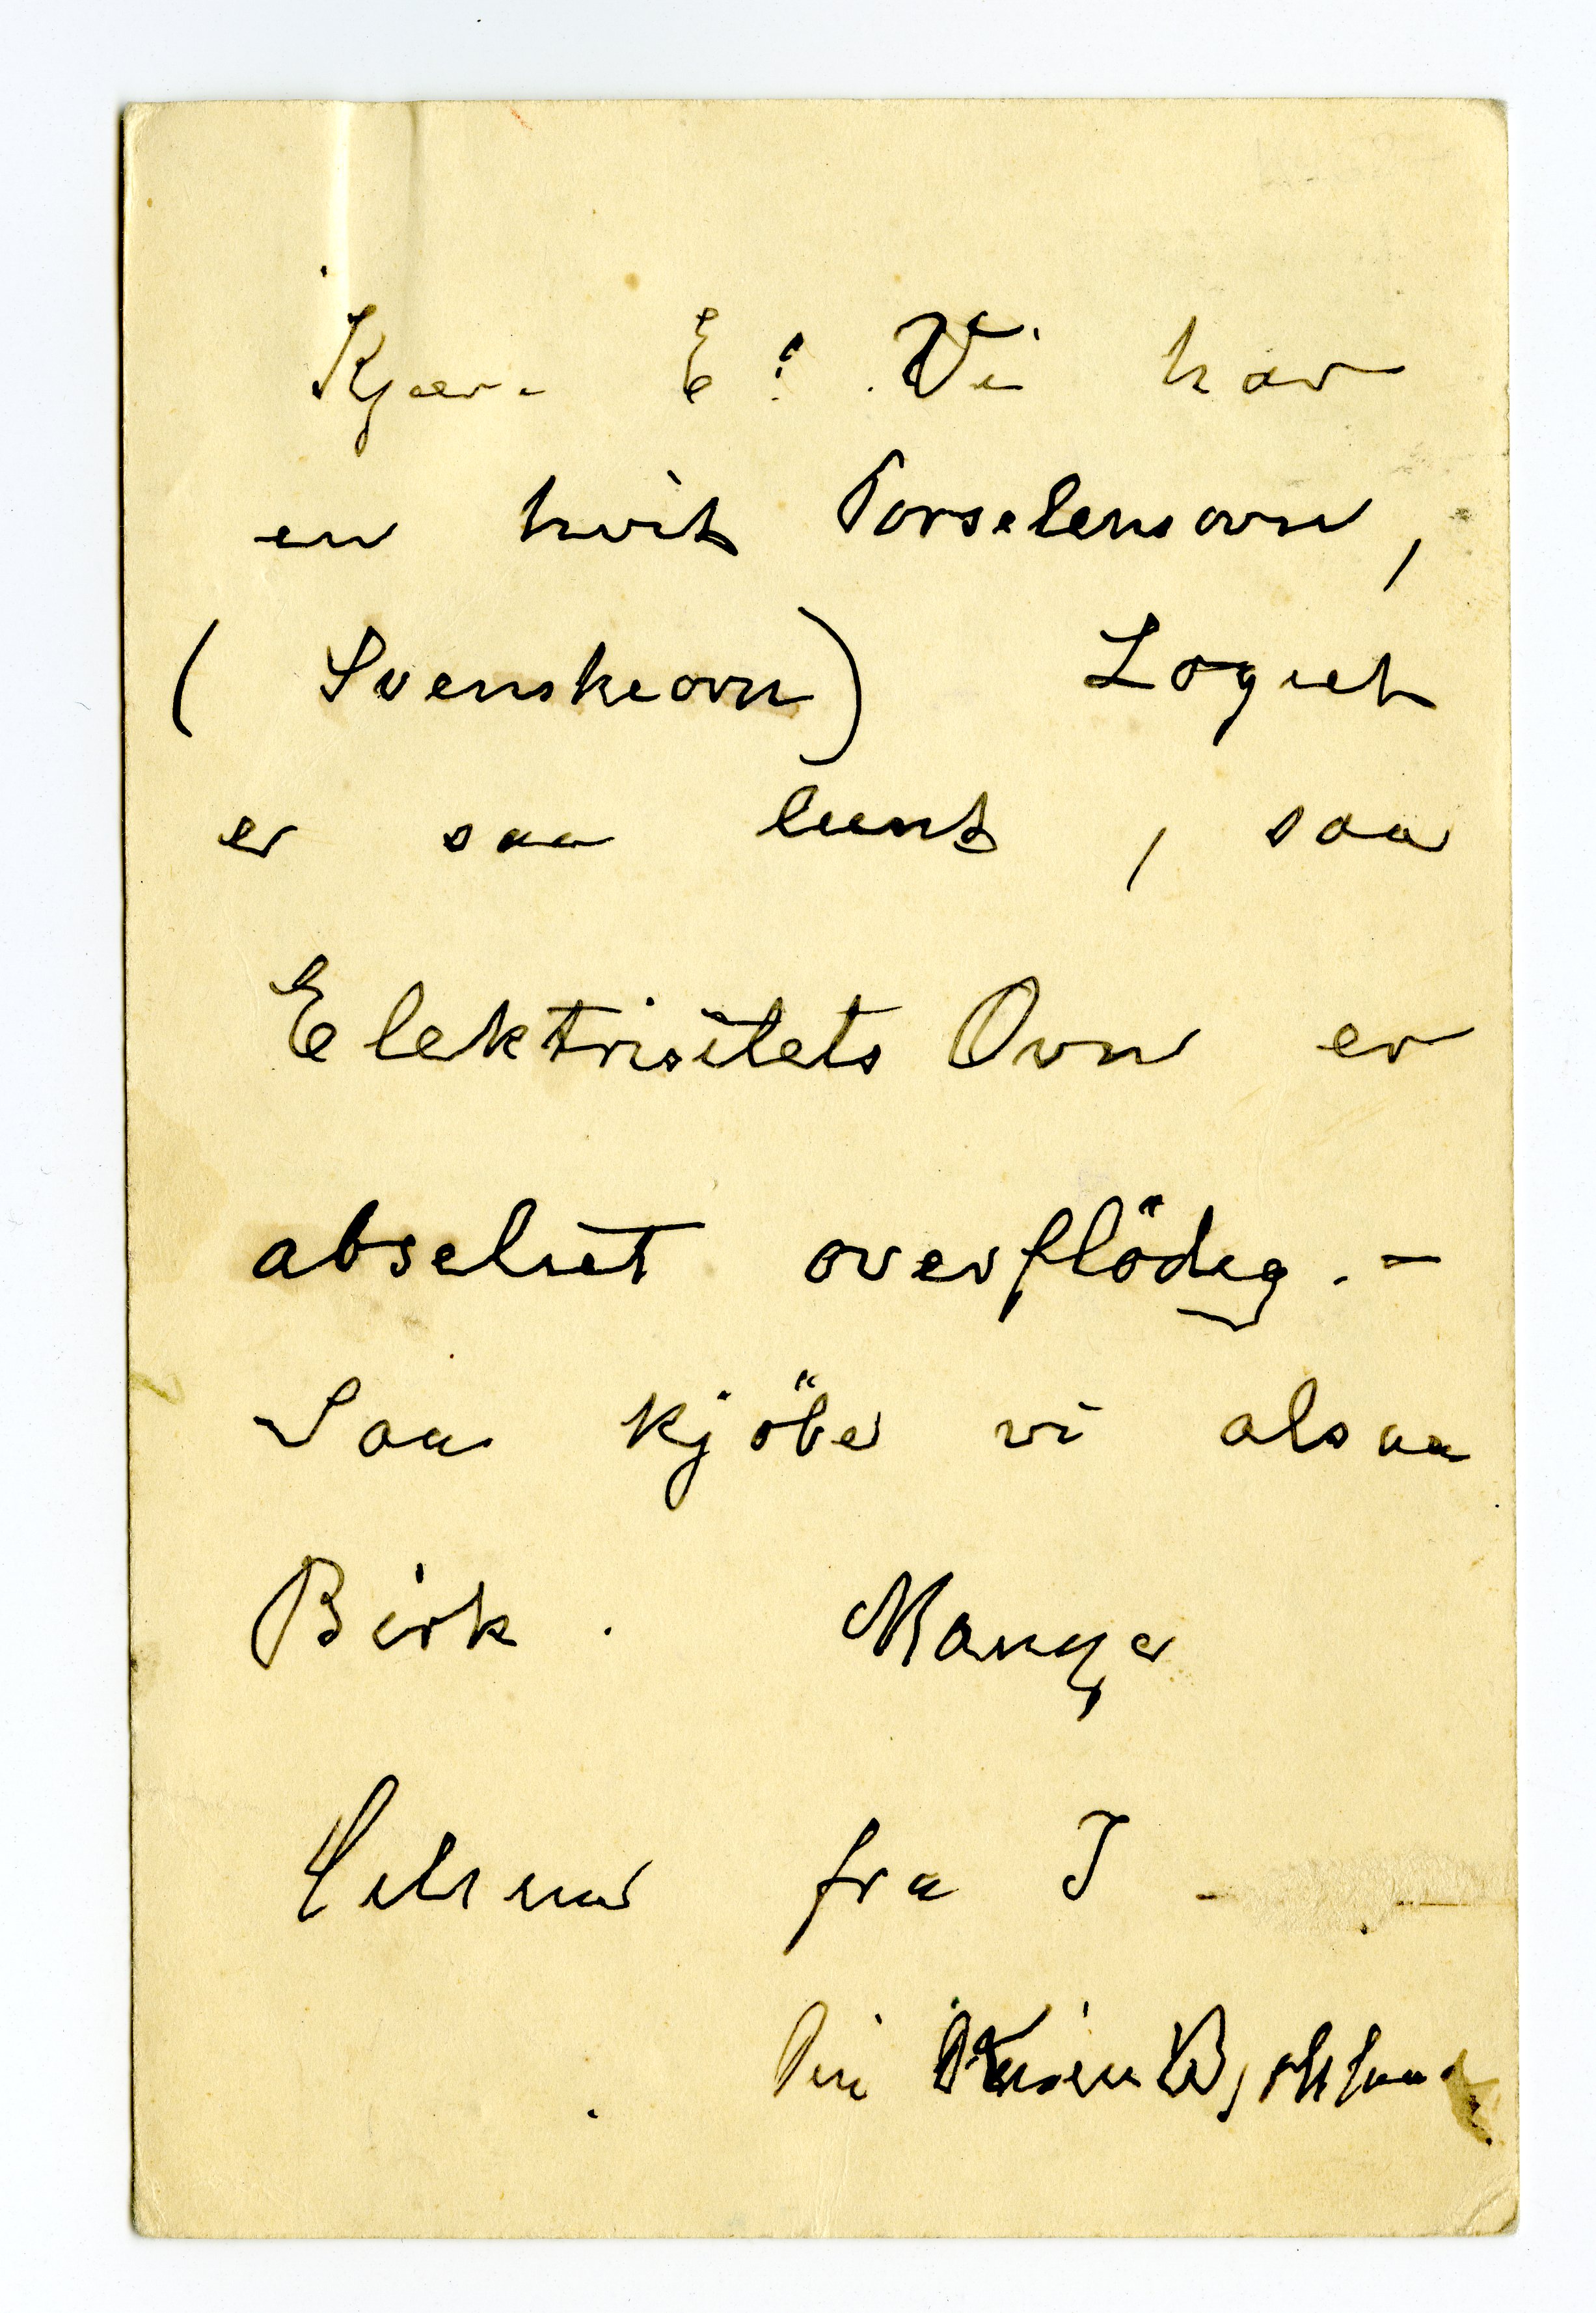 Kjære E! Vi har
en hvit Porselensovn,
(Svenskeovn) Logiet
er saa lunt, saa
Elektrisitets Ovn er
absolut overflödig. -
Saa kjöbe vi alsaa
Birk. Mange
Hilsener fra I -
Din